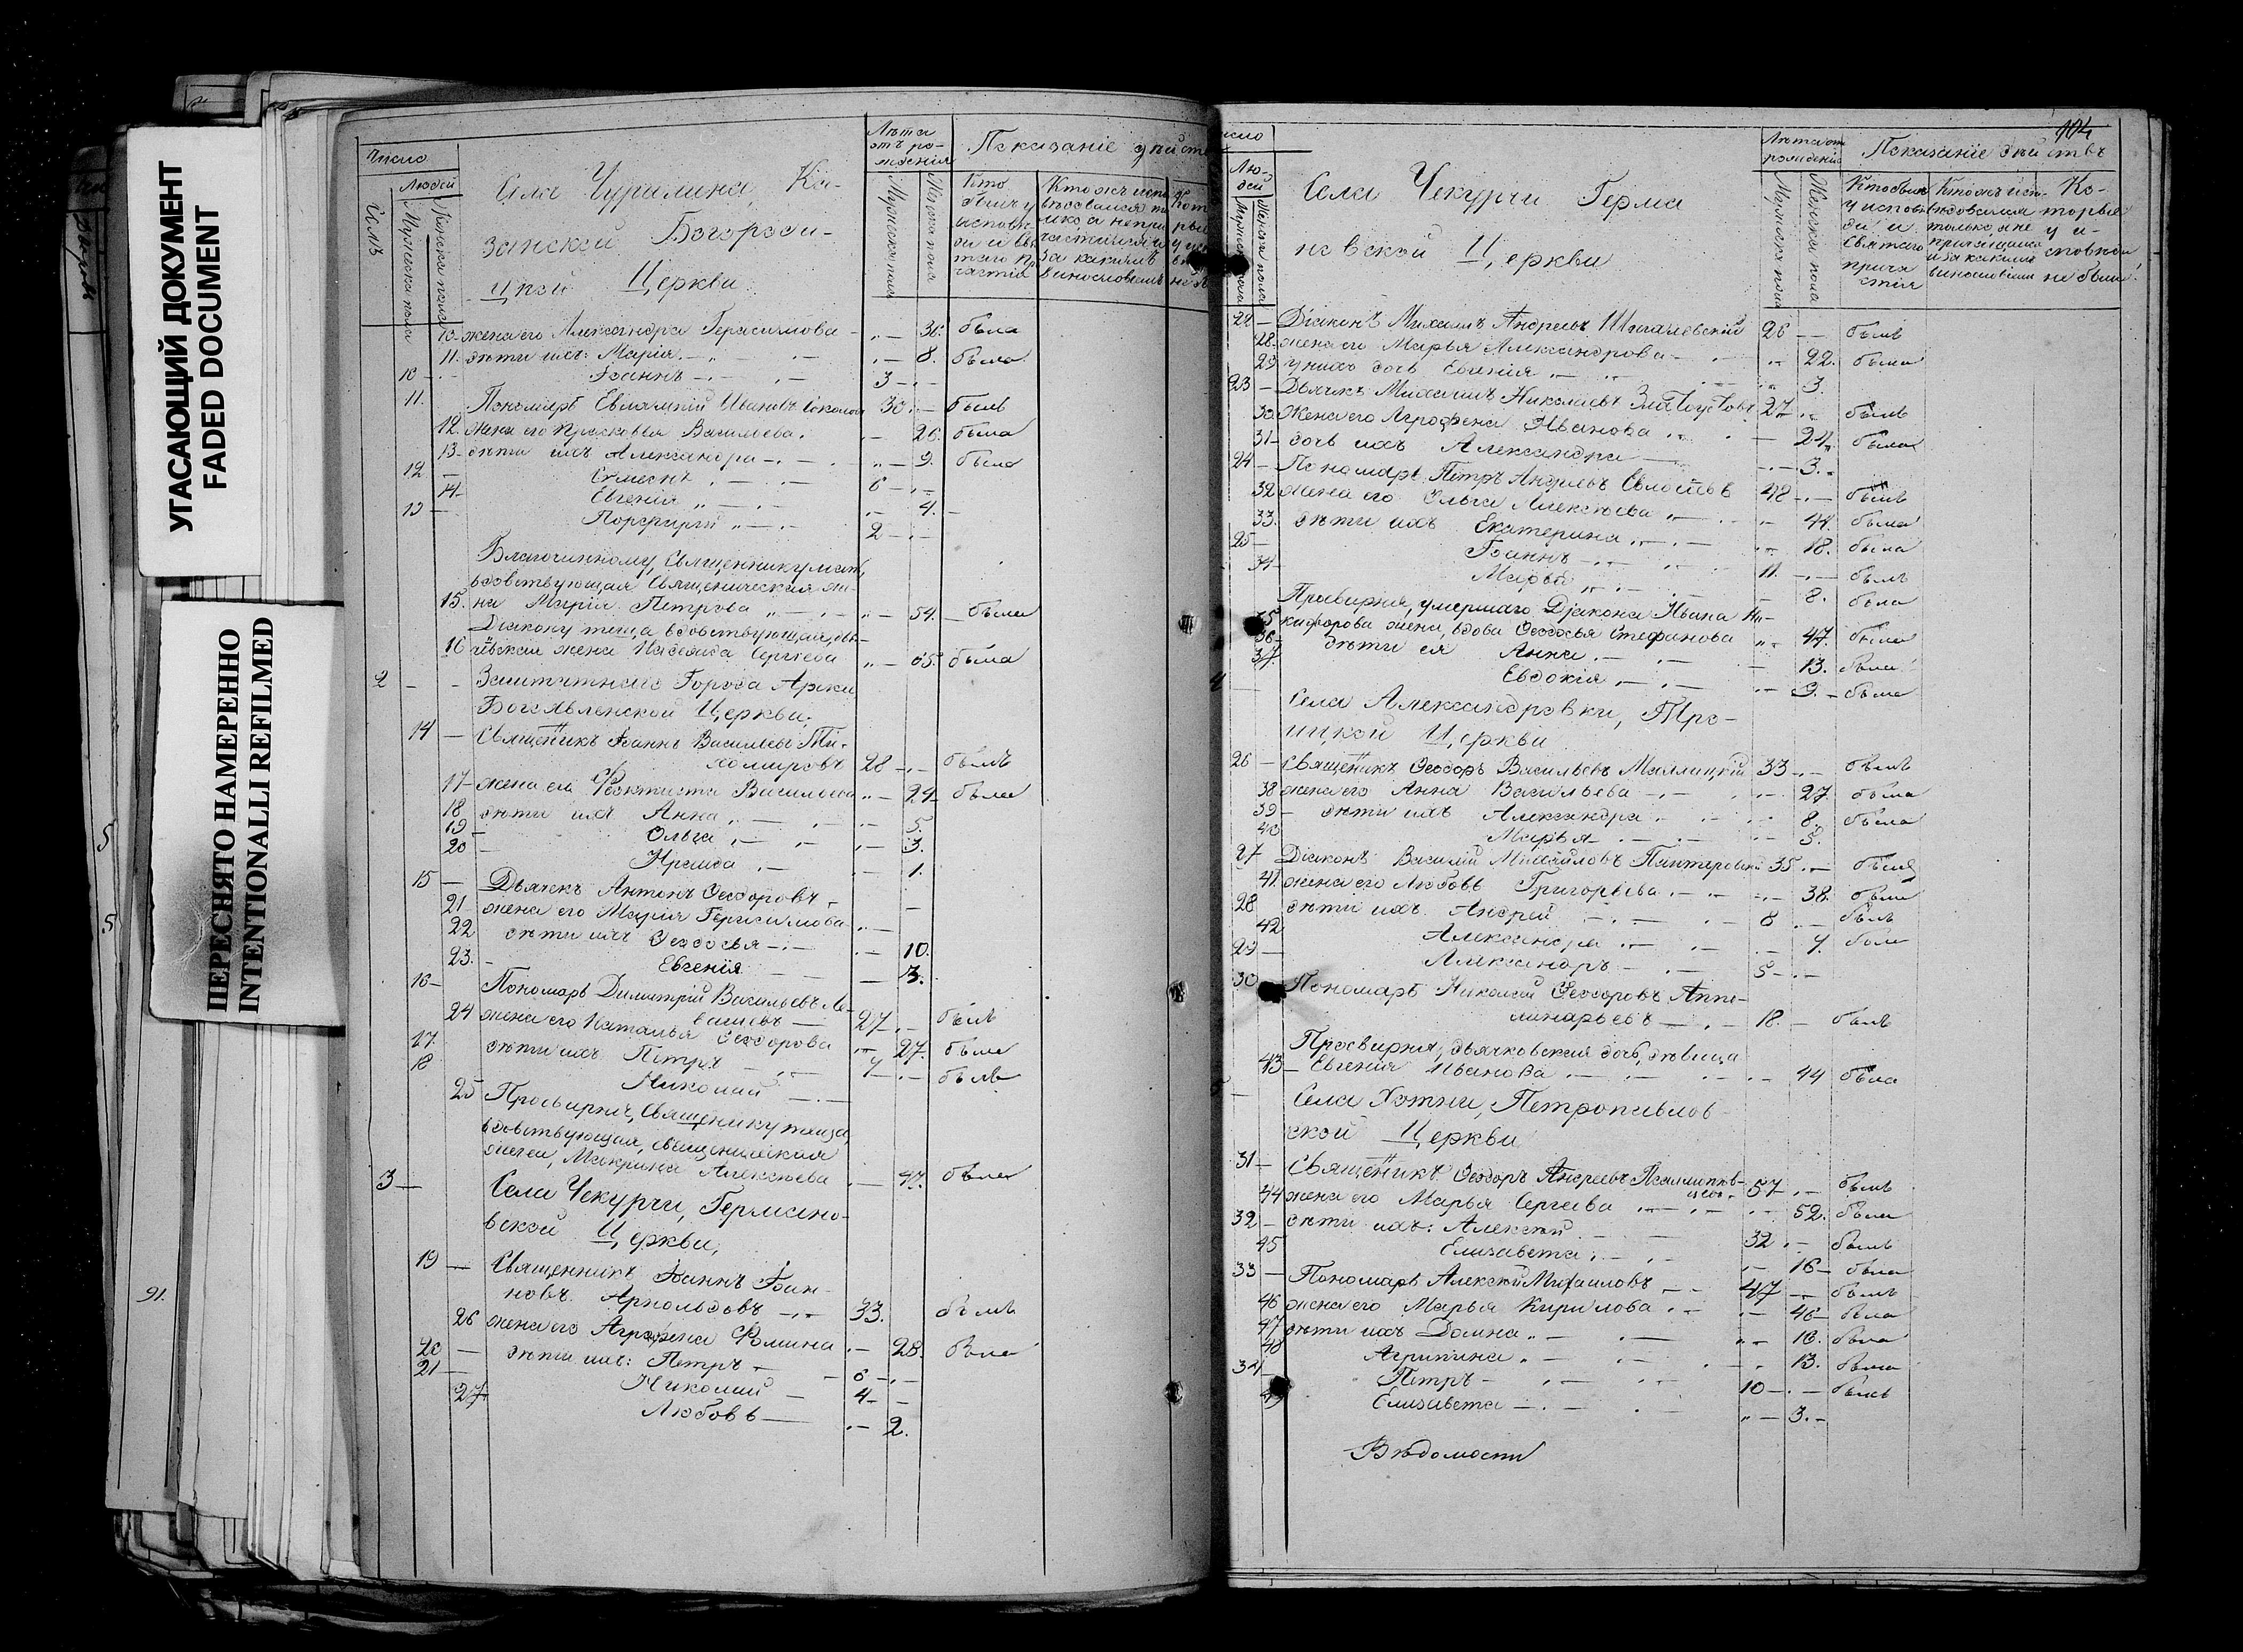 УГАСАЮЩИЙ ДОКУМЕНТ
FADED DOCUMENT
ПЕРЕСНЯТО НАМЕРЕННО
INTENTIONALLI REFILMED
5
5
91.
Число
Людей
Мужеска пола
Женска пола
Села Чурилина, Ка-
занской Богороди-
цкой Церкви
Лѣта
отъ ро-
жденія
Мужеска пола
Женска пола
Показаніе дѣйств
10. жена его Александра Герасимова 36. была
11. дѣти ихъ: Марія 8. была
10 Іоаннъ 3
11. Пономарь Евлампій Ивановъ Соколовъ 30 былъ
12. жена его Прасковья Васильева. 26. была
13. дѣти ихъ Александра 9. была
12 Симеонъ 6
14. Евгенія 4.
13 Порфирій 2
Благочинному, Священнику мать,
вдовствующая Священническая же-
15. на Марія Петрова 54. была
Діакону теща вдовствующая, дья-
16 Надежда Сергіева 65. была
2 Заштатнаго Города Арска
Богоявленской Церкви:
14 Священникъ Іоаннъ Васильевъ Ти-
хомировъ 28 былъ
17 жена его Феоктиста Васильева 24 была
18 дѣти ихъ Анна 5.
19 Ольга 3.
20 Ираида 1.
15 Дьячекъ Антонъ Ѳеодоровъ
21 жена его Марія Герасимова
22 дѣти ихъ Ѳеодосья 10.
23. Евгенія 3.
16 Пономарь Димитрій Васильевъ Ле-
27 былъ
24 жена его Наталья Ѳеодорова 27. была
17. дѣти ихъ Петръ 7 былъ
18 Николай
25 Просвирня, Священнику теща,
вдовствующая, священническая
жена, Макрина Алексѣева 47. была
3 Села Чекурчи, Германо-
вской Церкви,
19 Священникъ Іоаннъ Іоан-
новъ Арнольдовъ 33. былъ
26 жена его Аграфена Фомина 28. была
20 дѣти ихъ: Петръ 6
21 Николай 4
27 Любовь 2.
104
Лю-
дей
Села Чекурчи Герма
новской Церкви
Лѣта отъ
рожденія
Мужеска пола
Женска пола
Показаніе дѣйствъ
22 Діаконъ Михаилъ Андреевъ 26 былъ
28. жена его Марья Александрова 22. была
29 у нихъ дочь Евгенія 3.
23 Дьячекъ Михаилъ Николаевъ Златоустовъ 27 былъ
30. Жена его Агрофена Иванова 24. была
31 дочь ихъ Александра 3.
24 Пономарь Петръ Андреевъ 48 былъ
32 жена его Ольга Алексѣева 44. была
33. дѣти ихъ Екатерина 18. была
25 Іоаннъ 11. былъ
34 Марья 8. была
Просвирня, умершаго Діакона Ивана Ни-
35 кифорова жена, вдова Ѳеодосья Стефанова 47. была
36 дѣти ея Анна 13. была
37. Евдокія 9. была
4 Села Александровки, Тро-
ицкой Церкви
26 Священникъ Ѳеодоръ Васильевъ 33 былъ
38 жена его Анна Васильева 27. была
39 дѣти ихъ Александра 8. была
40 Марья 5.
27 Діаконъ Василій Михайловъ 35 былъ
41. жена его Любовь Григорьева 38. была
28 дѣти ихъ Андрей 8 былъ
42 Александра 7. была
29 Александръ 5
30 Пономарь Николай Ѳеодоровъ Аппо-
линарьевъ 18. былъ
Просвирня, дьячковская дочь, дѣвица
43 Евгенія Иванова 44 была
5 Села Хотни, Петропавлов-
ской Церкви
31 Священникъ Ѳеодоръ Андреевъ 57 былъ
44 жена его Марья Сергеева 52. была
32 дѣти ихъ: Алексѣй 32 былъ
45 Елизавета 16 была
33 Пономарь Алексѣй Михаиловъ 47 былъ
46 жена его Марья Кирилова 46 была
47 дѣти ихъ Домна 16. была
48 Агрипина 13. была
34 Петръ 10 былъ
49 Елизавета 3.
Вѣдомости